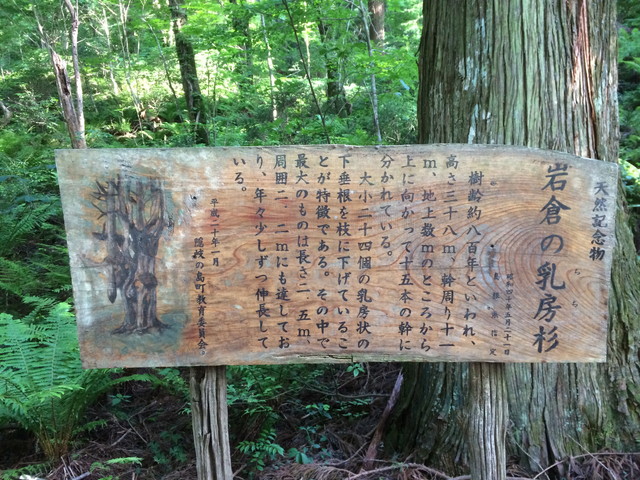 天然記念物
岩倉の乳房杉
ちち
昭和四十年五月二十一日
島根県指定
樹齢約八百年といわれ、
高さ三十八m、幹周り十一
m、地上数mのところから
上に向かって十五本の幹に
分かれている。
大小二十四個の乳房状の
下垂根を枝に下げているこ
とが特徴である。その中で
最大のものは長さ二．五m、
周囲二．二mにも達してお
り、年々少しずつ伸長して
いる。
平成二十年一月
隠岐の島町教育委員会